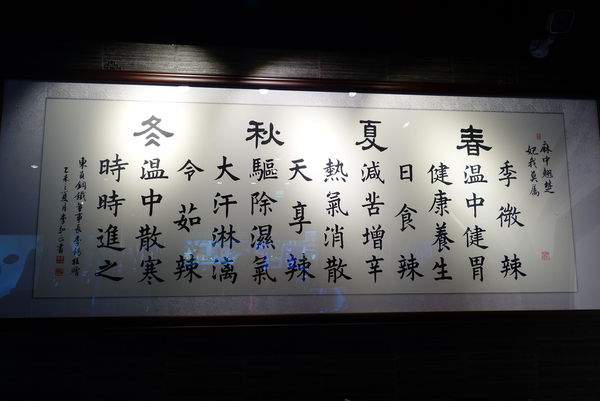 麻中翹楚
妃我莫屬
春
季微辣
溫中健胃
健康養生
夏
日食辣
減苦增辛
熱氣消散
秋
天享辣
驅除濕氣
大汗淋漓
冬
令茹辣
溫中散寒
時時進之
鋼鐵董事長李
乙未之夏月李書